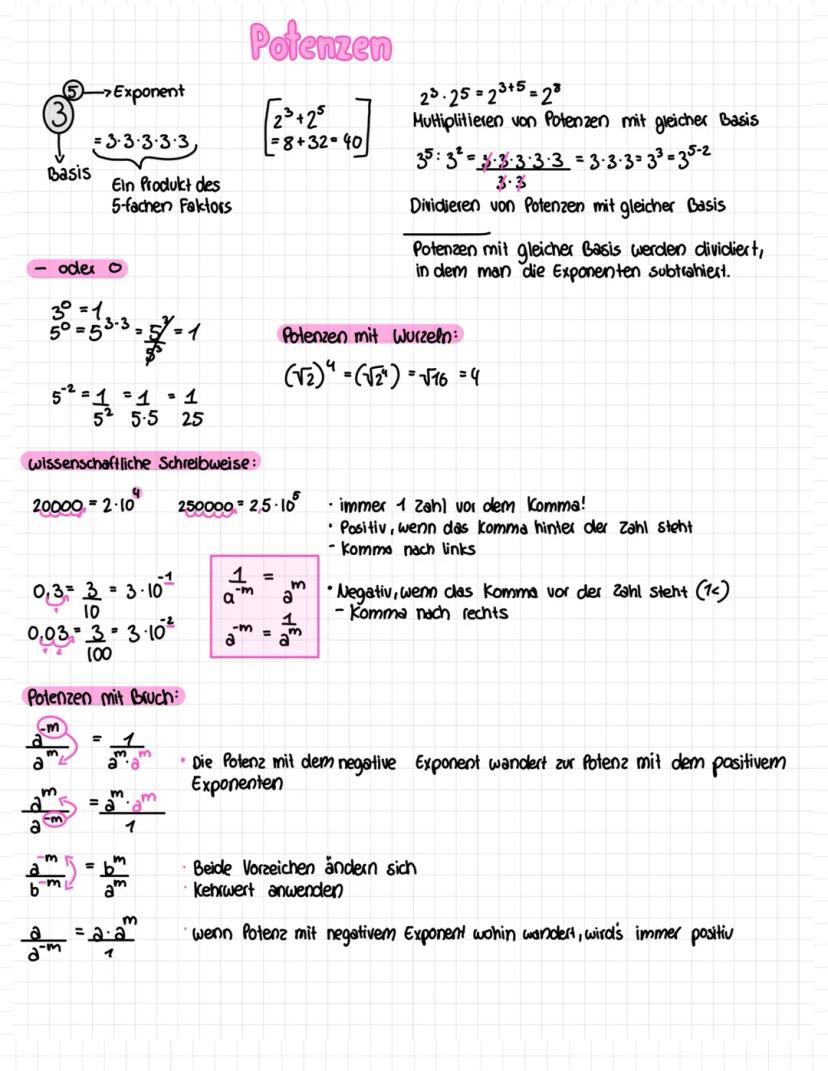 Potenzen
3⁵ → Exponent
= 3·3·3·3·3
Basis
Ein Produkt des
5-fachen Faktors
[2³+2⁵
=8+32=40]
2³·25=2³⁺⁵=2⁸
Multiplitieren von Potenzen mit gleicher Basis
3⁵:3²= 3·3·3·3·3 / 3·3 = 3·3·3=3³=3⁵⁻²
Dividieren von Potenzen mit gleicher Basis
Potenzen mit gleicher Basis werden dividiert,
in dem man die Exponenten subtrahiert.
– oder 0
3⁰=1
5⁰=5³⁻³=5³/5³=1
5⁻²=1/5²=1/5·5=1/25
Potenzen mit Wurzeln:
(√2)⁴=(√2⁴)=√16=4
wissenschaftliche Schreibweise:
20000,=2·10⁴ 250000,=2,5·10⁵
· immer 1 Zahl vor dem Komma!
· Positiv, wenn das Komma hinter der Zahl steht
- Komma nach links
0,3=3/10=3·10⁻¹
0,03=3/100=3·10⁻²
1/a⁻ᵐ=aᵐ
a⁻ᵐ=1/aᵐ
· Negativ, wenn das Komma vor der Zahl steht (1<)
- Komma nach rechts
Potenzen mit Bruch:
a⁻ᵐ/aᵐ=1/aᵐ·aᵐ
· Die Potenz mit dem negative Exponent wandert zur Potenz mit dem positivem
Exponenten
aᵐ/a⁻ᵐ=aᵐ·aᵐ/1
a⁻ᵐ/b⁻ᵐ=bᵐ/aᵐ
· Beide Vorzeichen ändern sich
· Kehrwert anwenden
a/a⁻ᵐ=a·aᵐ/1
· wenn Potenz mit negativem Exponent wohin wandert, wird's immer positiv